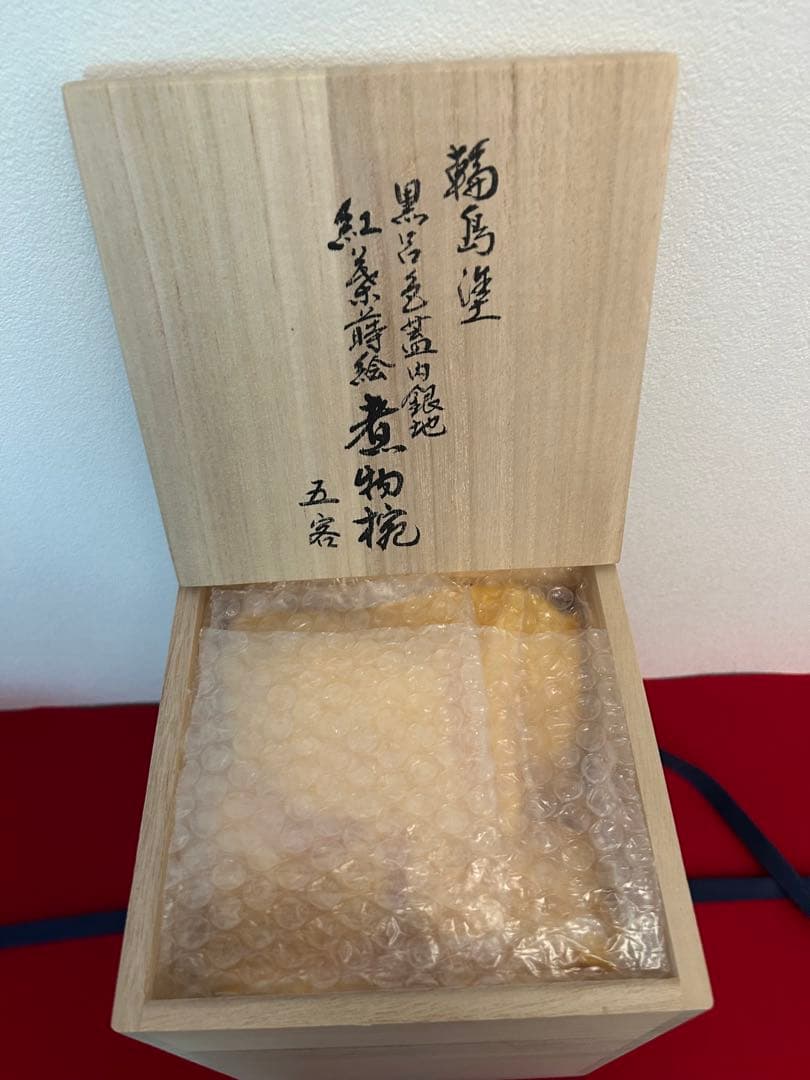 輪島塗
黒呂色蓋内銀地
紅葉蒔絵煮物椀
五客